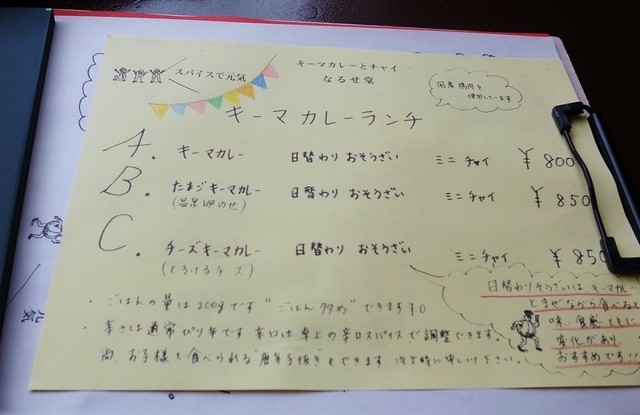 スパイスで元気
キーマカレーとチャイ
なるせ堂
国産鶏肉を
使用しています
キーマカレーランチ
A. キーマカレー 日替わり おそうざい ミニチャイ ¥800
B. たまごキーマカレー 日替わり おそうざい ミニチャイ ¥850
(温泉卵のせ)
C. チーズキーマカレー 日替わり おそうざい ミニチャイ ¥850
(とろけるチーズ)
・ごはんの量は200gです "ごはん多め"できます ¥0
・辛さは通常ぴり辛です 辛口は卓上の辛口スパイスで調整できます。
尚、お子様も食べられる唐辛子抜きもできます 注文時に申し付け下さい。
日替わりそうざいは キーマカレー
とまぜながら食べると
味 食感 ともに
変化があり
おすすめです!!
元気